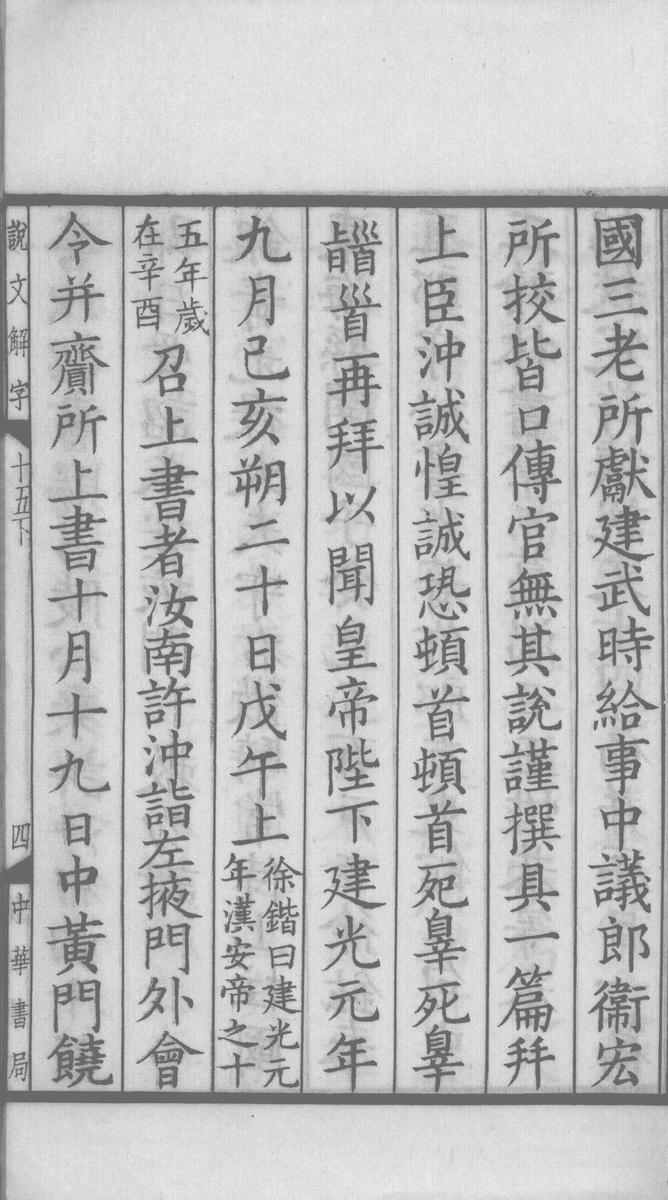 國三老所獻建武時給事中議郎衞宏
所挍皆口傳官無其說謹撰具一篇拜
上臣沖誠惶誠恐頓首頓首死辠死辠
𩒨𩠐再拜以聞皇帝陛下建光元年
九月己亥朔二十日戊午上徐鍇曰建光元年漢安帝之十
五年歲在辛酉召上書者汝南許沖詣左掖門外會
令幷齎所上書十月十九日中黃門饒
說文解字 十五下 四 中華書局